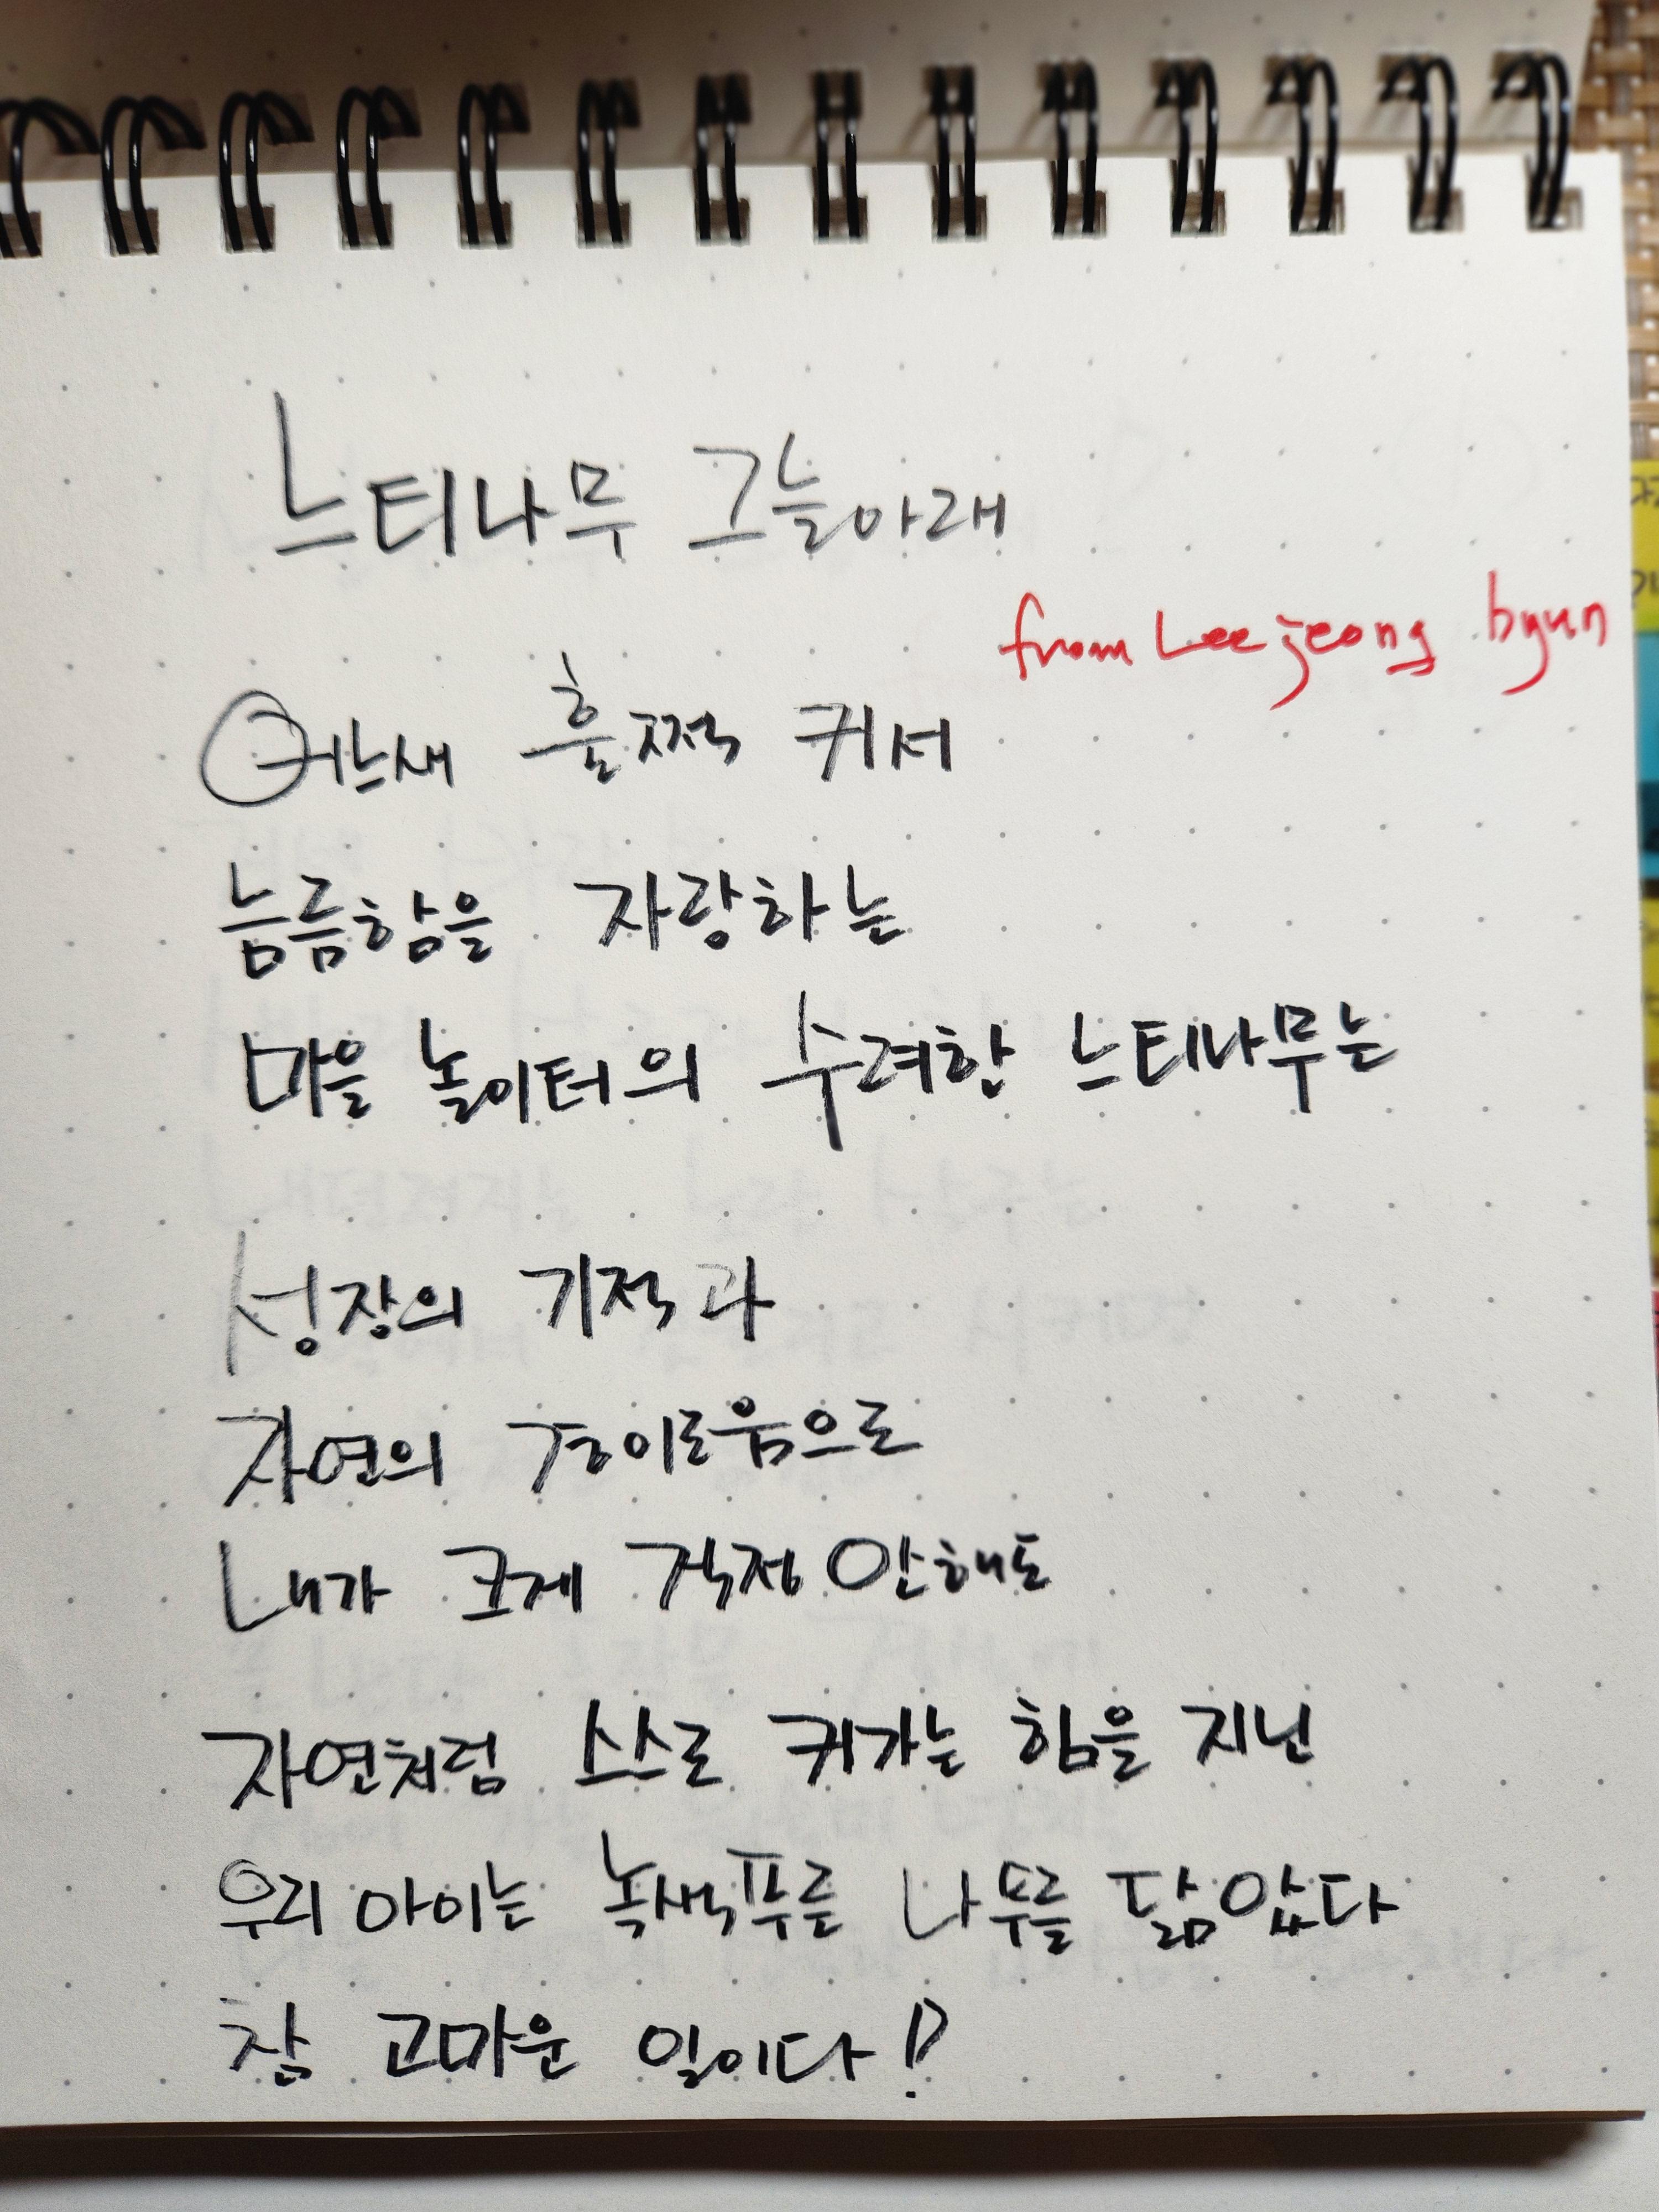 느티나무 그늘아래
from Leejeong byun
어느새 훌쩍 커서
늠름함을 자랑하는
마을 놀이터의 수려한 느티나무는
성장의 기적과
자연의 경이로움으로
내가 크게 걱정 안해도
자연처럼 스스로 커가는 힘을 지닌
우리 아이는 녹색푸른 나무를 닮았다
참 고마운 일이다!